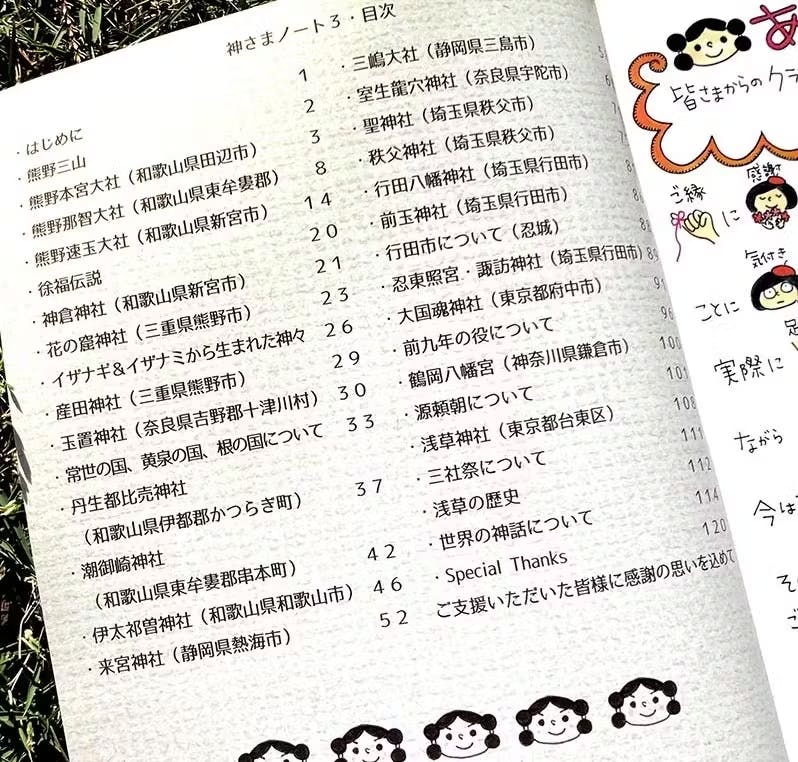 神さまノート3・目次
・はじめに 1
・熊野三山 2
・熊野本宮大社（和歌山県田辺市） 3
・熊野那智大社（和歌山県東牟婁郡） 8
・熊野速玉大社（和歌山県新宮市） 14
・徐福伝説 20
・神倉神社（和歌山県新宮市） 21
・花の窟神社（三重県熊野市） 23
・イザナギ＆イザナミから生まれた神々 26
・産田神社（三重県熊野市） 29
・玉置神社（奈良県吉野郡十津川村） 30
・常世の国、黄泉の国、根の国について 33
・丹生都比売神社
（和歌山県伊都郡かつらぎ町） 37
・潮御崎神社
（和歌山県東牟婁郡串本町） 42
・伊太祁曽神社（和歌山県和歌山市） 46
・来宮神社（静岡県熱海市） 52
・三嶋大社（静岡県三島市）
・室生龍穴神社（奈良県宇陀市）
・聖神社（埼玉県秩父市）
・秩父神社（埼玉県秩父市）
・行田八幡神社（埼玉県行田市）
・前玉神社（埼玉県行田市）
・行田市について（忍城）
・忍東照宮・諏訪神社（埼玉県行田市） 89
・大国魂神社（東京都府中市） 91
・前九年の役について 96
・鶴岡八幡宮（神奈川県鎌倉市） 100
・源頼朝について
・浅草神社（東京都台東区） 108
・三社祭について 111
・浅草の歴史 112
・世界の神話について 114
・Special Thanks 120
ご支援いただいた皆様に感謝の思いを込めて
あ
皆さまからのクラ
感謝
ご縁
に
気付き
ことに
実際に
ながら
今は
そ
ご